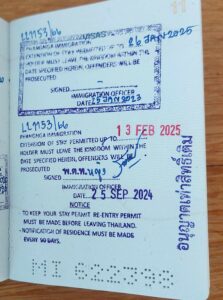 11
LL1153/66
PHANGNGA IMMIGRATION
26 JAN 2025
EXTENSION OF STAY PERMITTED UP TO
HOLDER MUST LEAVE THE KINGDOM WITHIN THE
DATE SPECIFIED HEREIN. OFFENDERS WILL BE
PROSECUTED
SIGNED
IMMIGRATION OFFICER
DATE
LL1153/66
PHANGNGA IMMIGRATION
13 FEB 2025
EXTENSION OF STAY PERMITTED UP TO
HOLDER MUST LEAVE THE KINGDOM WITHIN THE
DATE SPECIFIED HEREIN. OFFENDERS WILL BE
PROSECUTED
SIGNED
IMMIGRATION OFFICER
DATE 25 SEP 2024
NOTICE
- TO KEEP YOUR STAY PERMIT RE-ENTRY PERMIT
MUST BE MADE BEFORE LEAVING THAILAND.
- NOTIFICATION OF RESIDENCE MUST BE MADE
EVERY 90 DAYS.
อนุญาตเท่าสิทธิ์เดิม